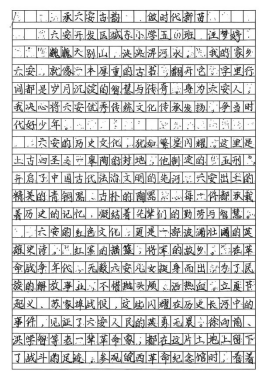 承六安古韵 做时代新苗
六安开发区城东小学五(6)班 汪梦婷
巍巍大别山,泱泱淠河水。我的家乡
六安,就像一本厚重的古书,翻开它,字里行
间都是岁月沉淀的智慧与传奇。身为六安人,
我决心将六安优秀传统文化传承发扬,争当时
代好少年。
六安的历史文化,犹如繁星闪耀。这里是
上古四圣之一皋陶的封地,他制定的“五刑”,
开启了中国古代法治文明的先河。六安出土的
精美的青铜器、古朴的陶器……每一件都承载
着历史的记忆,凝结着先辈们的勤劳与智慧。
六安的红色文化,更是一部波澜壮阔的英
雄史诗。“红军的摇篮,将军的故乡”。在革
命战争年代,无数六安儿女挺身而出,为了民
族的解放事业,不惜抛头颅、洒热血。立夏节
起义、苏家埠战役,这些闪耀在历史长河中的
事件,见证了六安人民的英勇无畏。徐向前、
洪学智等老一辈革命家,都在这片土地上留下
了战斗的足迹。参观皖西革命纪念馆时,看着